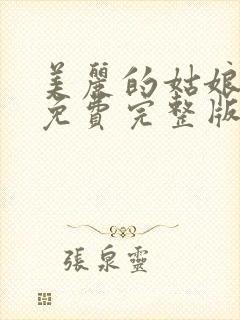 美麗的姑娘
免費完整版
張泉靈